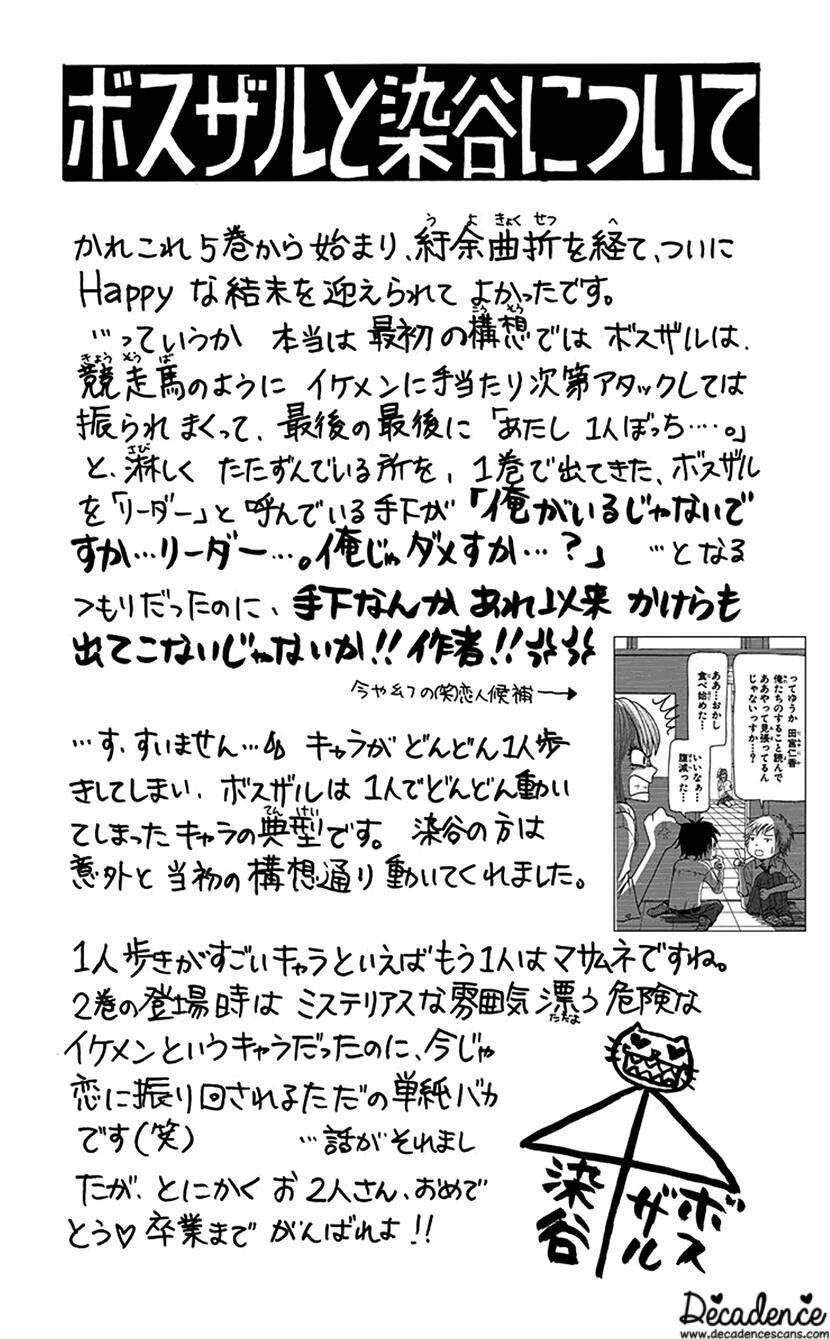 ボスザルと染谷について
かれこれ5巻から始まり、紆余曲折を経て、ついに
Happyな結末を迎えられて よかったです。
…っていうか 本当は最初の構想では ボスザルは、
競走馬のように イケメンに手当たり次第アタックしては
振られまくって、最後の最後に「あたし 1人ぼっち…。」
と、淋しく たたずんでいる所を、1巻で出てきた、ボスザル
を「リーダー」と呼んでいる手下が「俺がいるじゃないで
すか…リーダー…。俺じゃダメすか…?」 …となる
つもりだったのに、手下なんか あれ以来 かけらも
出てこないじゃないか!!作者!!
今や幻の(笑)恋人候補→
ってゆうか 田宮仁香
俺たちのすること読んで
ああやって見張ってるん
じゃないっすか…?
ああ…おかし
食べ始めた…
いいなぁ…
腹減った…
…す、すいません… キャラが どんどん1人歩
きしてしまい、ボスザルは 1人でどんどん動い
てしまったキャラの典型です。 染谷の方は
意外と 当初の構想通り 動いてくれました。
1人歩きがすごいキャラといえばもう1人はマサムネですね。
2巻の登場時は ミステリアスな雰囲気漂う危険な
イケメンというキャラだったのに、今じゃ
恋に振り回されるただの単純バカ
です(笑) …話がそれまし
たが、とにかく お2人さん、おめで
とう♡卒業まで がんばれよ!!
染谷
ボスザル
Decadence
www.decadencescans.com